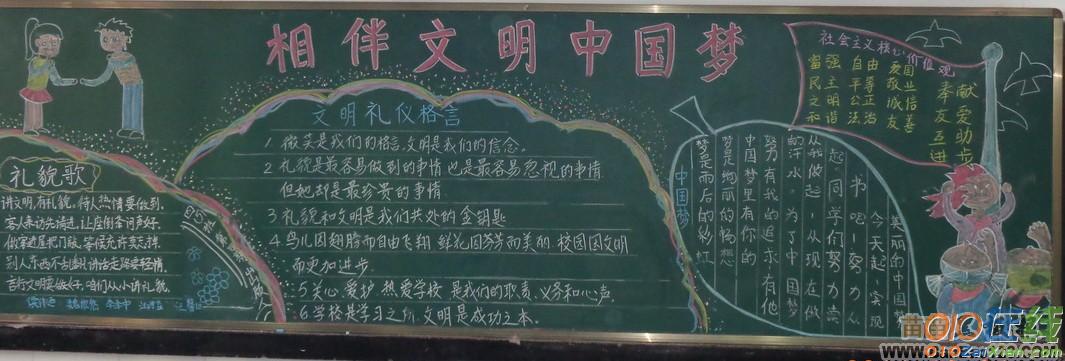 相伴文明中国梦
礼貌歌
讲文明,有礼貌。待人热情要做到。
客人来访先请进,让座倒茶问声好。
做客进屋把门敲。等候允许
别人东西不乱翻,讲话走路要轻
言行文明要做好,咱们从小讲礼貌。
文明礼仪格言
1.微笑是我们的格言,文明是我们的信念。
2.礼貌是最容易做到的事情也是最容易忽视的事情
但她却是最珍贵的事情
3.礼貌和文明是我们共处的金钥匙
4.鸟儿因翅膀而自由飞翔 鲜花因芬芳而美丽 校园因文明
而更加进步.
5.关心 爱护 热爱学校 是我们的职责、义务和心声
6.学校是学习之所 文明是成功之本。
中国梦
梦是雨后的彩虹
梦是绚丽的畅想
中国梦里有你的
努力有我的追求有他
的汗水。为了中国梦
从我做起,从现在做
起。同学们努力读
书吧!努力从
今天起,实现
美丽的中国梦
社会主义核心价值观
富强 自由 爱国
民主 平等 敬业
文明 公正 诚信
和谐 法治 友善
奉献
友爱
互助
进步
OlOZaiXian.Com